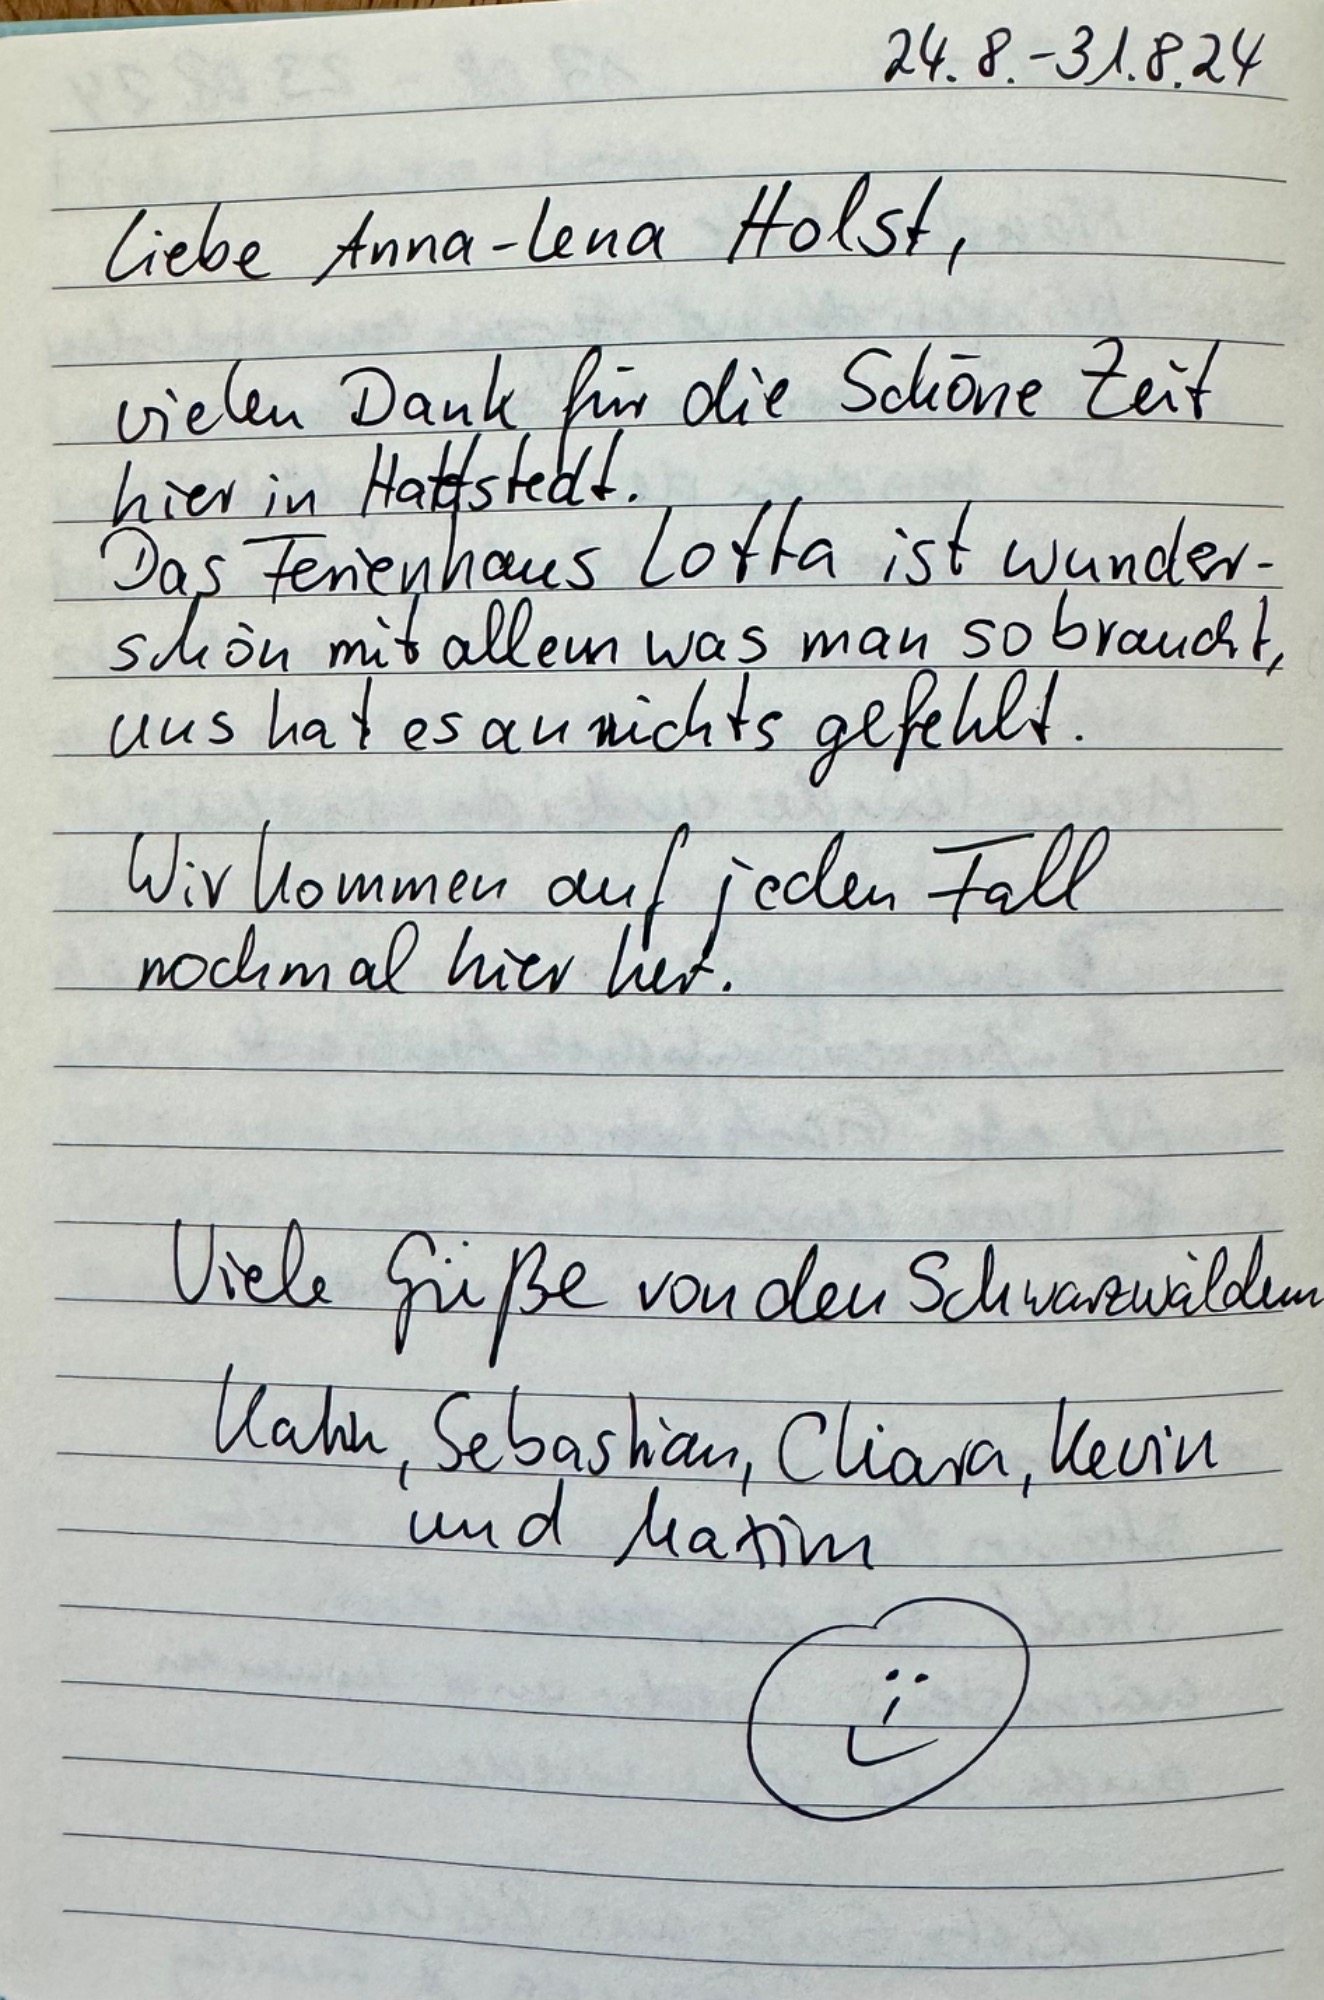 24.8.-31.8.24
Liebe Anna-Lena Holst,
vielen Dank für die Schöne Zeit
hier in Hattstedt.
Das Ferienhaus Lotta ist wunder-
schön mit allem was man so braucht,
uns hat es an nichts gefehlt.
Wir kommen auf jeden Fall
nochmal hier her.
Viele Grüße von den Schwarzwäldern
Katrin, Sebastian, Chiara, Kevin
und Maxim